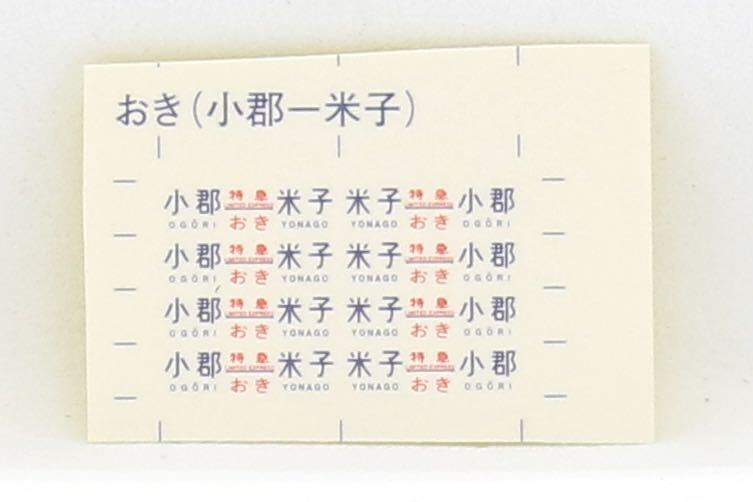 おき(小郡ー米子)
小郡 特急 米子 米子 特急 小郡
LIMITED EXPRESS LIMITED EXPRESS
OGŌRI おき YONAGO YONAGO おき OGŌRI
小郡 特急 米子 米子 特急 小郡
LIMITED EXPRESS LIMITED EXPRESS
OGŌRI おき YONAGO YONAGO おき OGŌRI
小郡 特急 米子 米子 特急 小郡
LIMITED EXPRESS LIMITED EXPRESS
OGŌRI おき YONAGO YONAGO おき OGŌRI
小郡 特急 米子 米子 特急 小郡
LIMITED EXPRESS LIMITED EXPRESS
OGŌRI おき YONAGO YONAGO おき OGŌRI